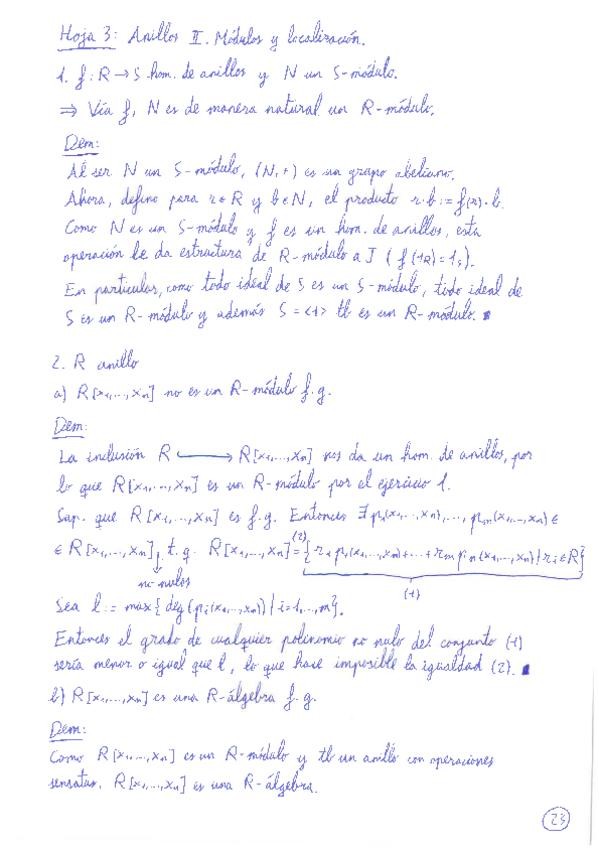 Hoja 3: Anillos II. Módulos y localización.
1. f: R → S hom. de anillos y N un S-módulo.
⇒ Vía f, N es de manera natural un R-módulo.
Dem:
Al ser N un S-módulo, (N,+) es un grupo abeliano.
Ahora, defino para r∈R y b∈N, el producto r·b := f(r)·b.
Como N es un S-módulo y f es un hom. de anillos, esta
operación le da estructura de R-módulo a J (f(1R)=1s).
En particular, como todo ideal de S es un S-módulo, todo ideal de
S es un R-módulo y además S = <1> tb es un R-módulo. ∎
2. R anillo
a) R[x₁,...,xₙ] no es un R-módulo f.g.
Dem:
La inclusión R ⟶ R[x₁,...,xₙ] nos da un hom. de anillos, por
lo que R[x₁,...,xₙ] es un R-módulo por el ejercicio 1.
Sup. que R[x₁,...,xₙ] es f.g. Entonces ∃ p₁(x₁,...,xₙ),...,pₘ(x₁,...,xₙ) ∈
∈ R[x₁,...,xₙ], t.q. R[x₁,...,xₙ] =⁽²⁾ {r₁p₁(x₁,...,xₙ)+...+rₘpₘ(x₁,...,xₙ) | rᵢ∈R}
no nulos
(1)
Sea l := max{deg(pᵢ(x₁,...,xₙ)) | i=1,...,m}.
Entonces el grado de cualquier polinomio no nulo del conjunto (1)
sería menor o igual que l, lo que hace imposible la igualdad (2). ∎
b) R[x₁,...,xₙ] es una R-álgebra f.g.
Dem:
Como R[x₁,...,xₙ] es un R-módulo y tb un anillo con operaciones
sensatas, R[x₁,...,xₙ] es una R-álgebra.
23